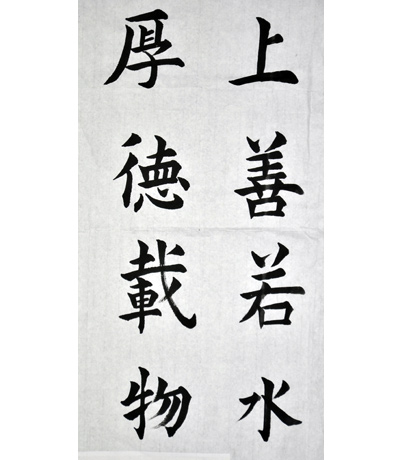 上善若水
厚徳載物